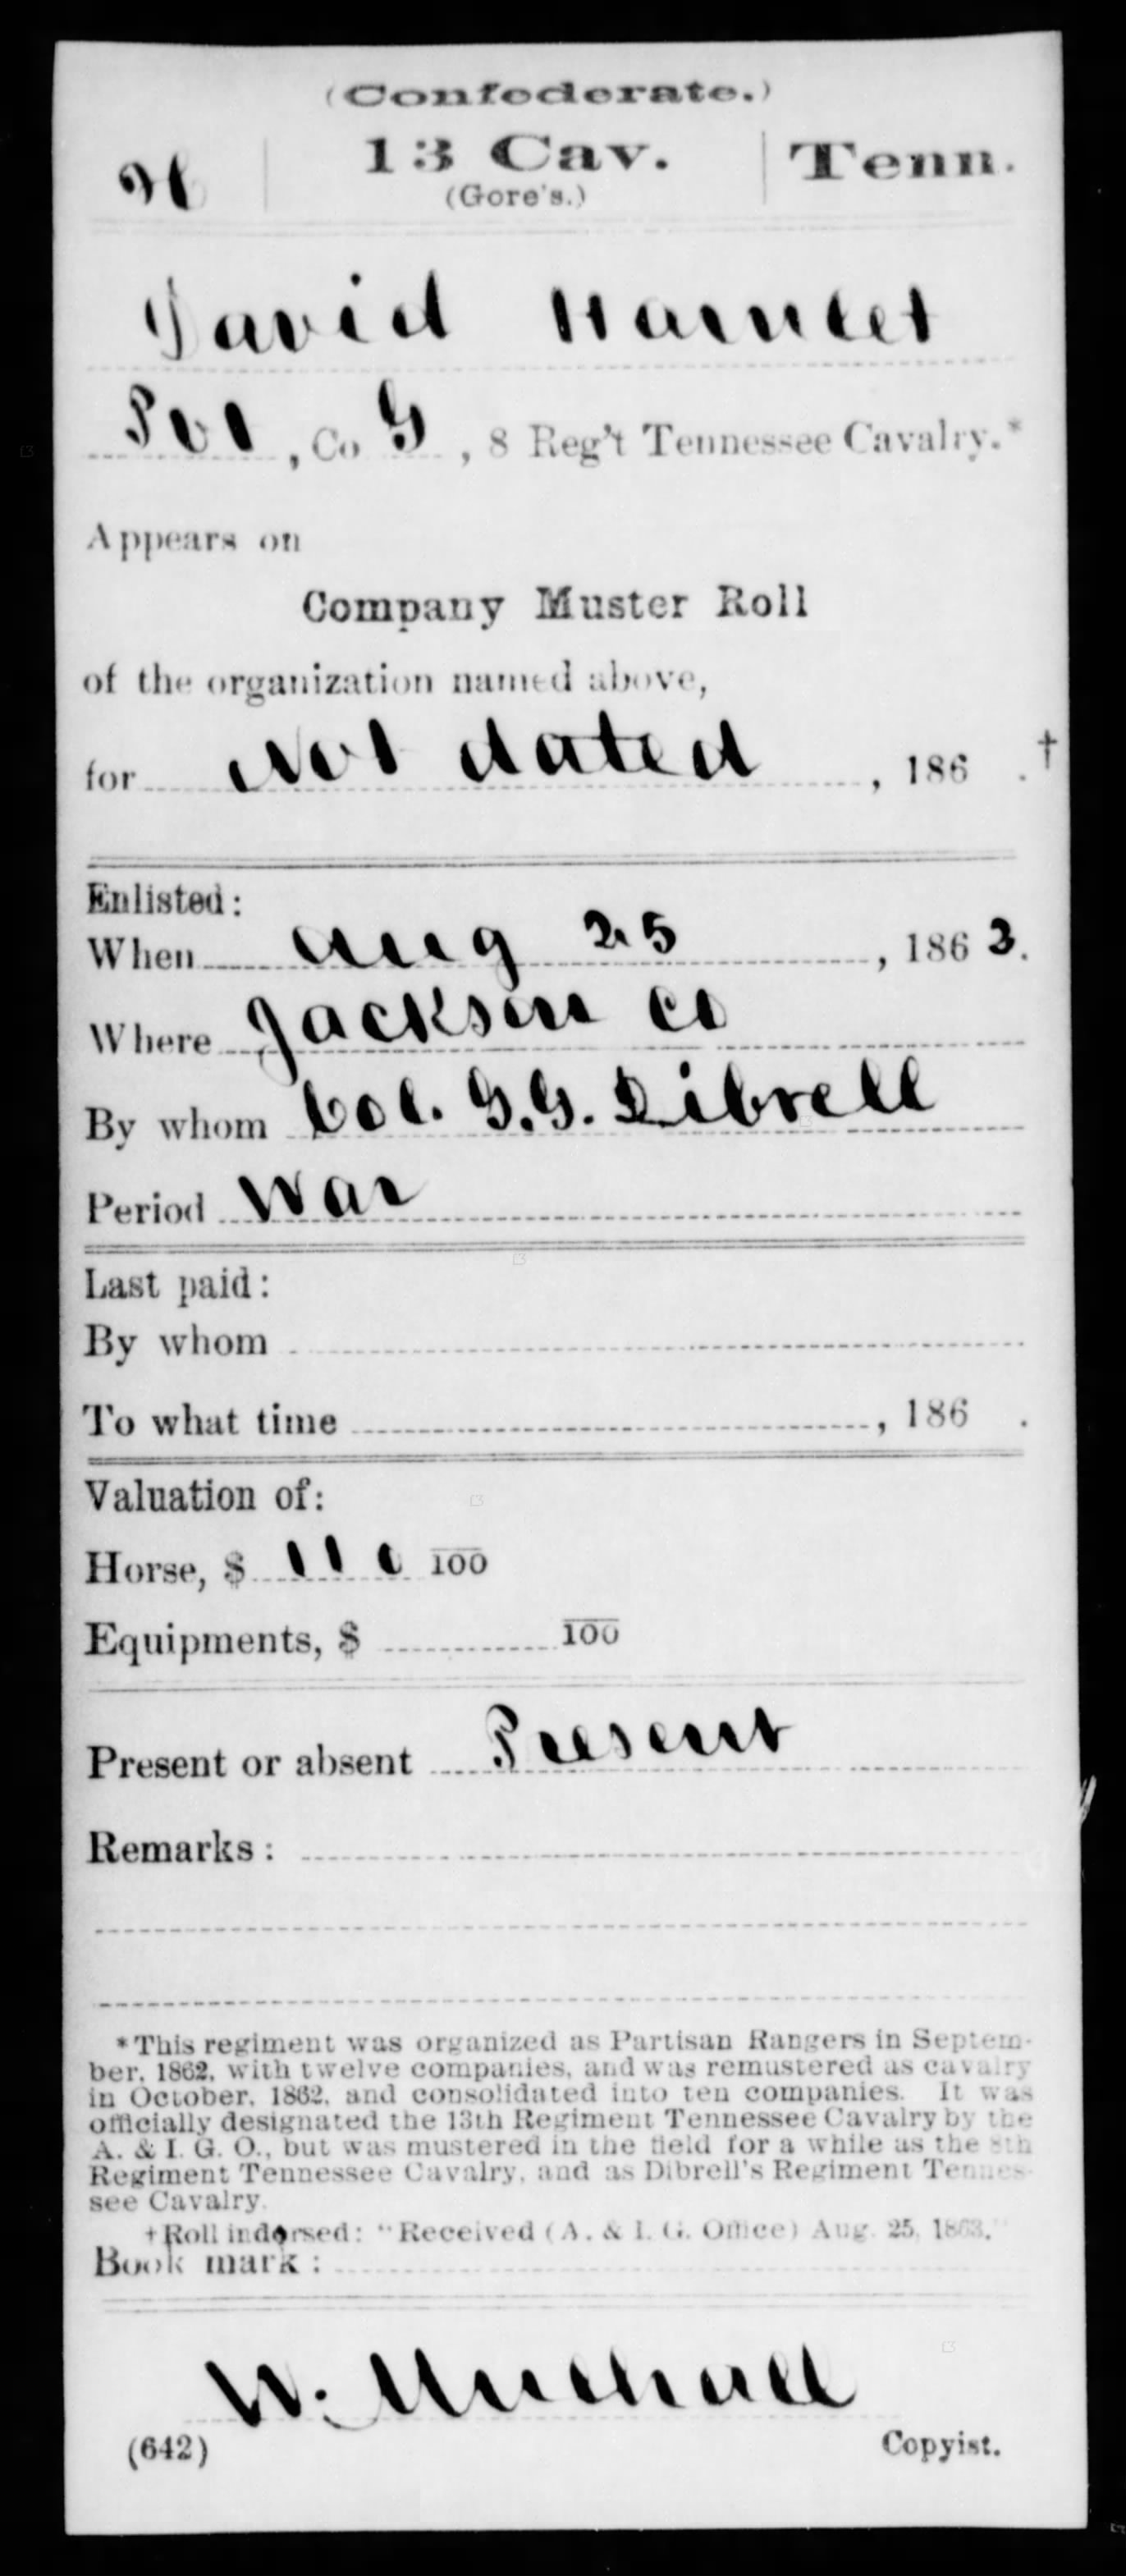 (Confederate.)
H | 13 Cav. | Tenn.
(Gore's.)
David Hamlet
Pvt, Co G, 8 Reg't Tennessee Cavalry.*
Appears on
Company Muster Roll
of the organization named above,
for Not dated, 186 .†
Enlisted:
When Aug 25, 1863.
Where Jackson Co
By whom Col. G.G. Dibrell
Period War
Last paid:
By whom
To what time , 186 .
Valuation of:
Horse, $ 110 100
Equipments, $ 100
Present or absent Present
Remarks:
*This regiment was organized as Partisan Rangers in Septem-
ber, 1862, with twelve companies, and was remustered as cavalry
in October, 1862, and consolidated into ten companies. It was
officially designated the 13th Regiment Tennessee Cavalry by the
A. & I. G. O., but was mustered in the field for a while as the 8th
Regiment Tennessee Cavalry, and as Dibrell's Regiment Tennes-
see Cavalry.
†Roll indorsed: "Received (A. & I. G. Office) Aug. 25, 1863."
Book mark:
W.
(642) Copyist.